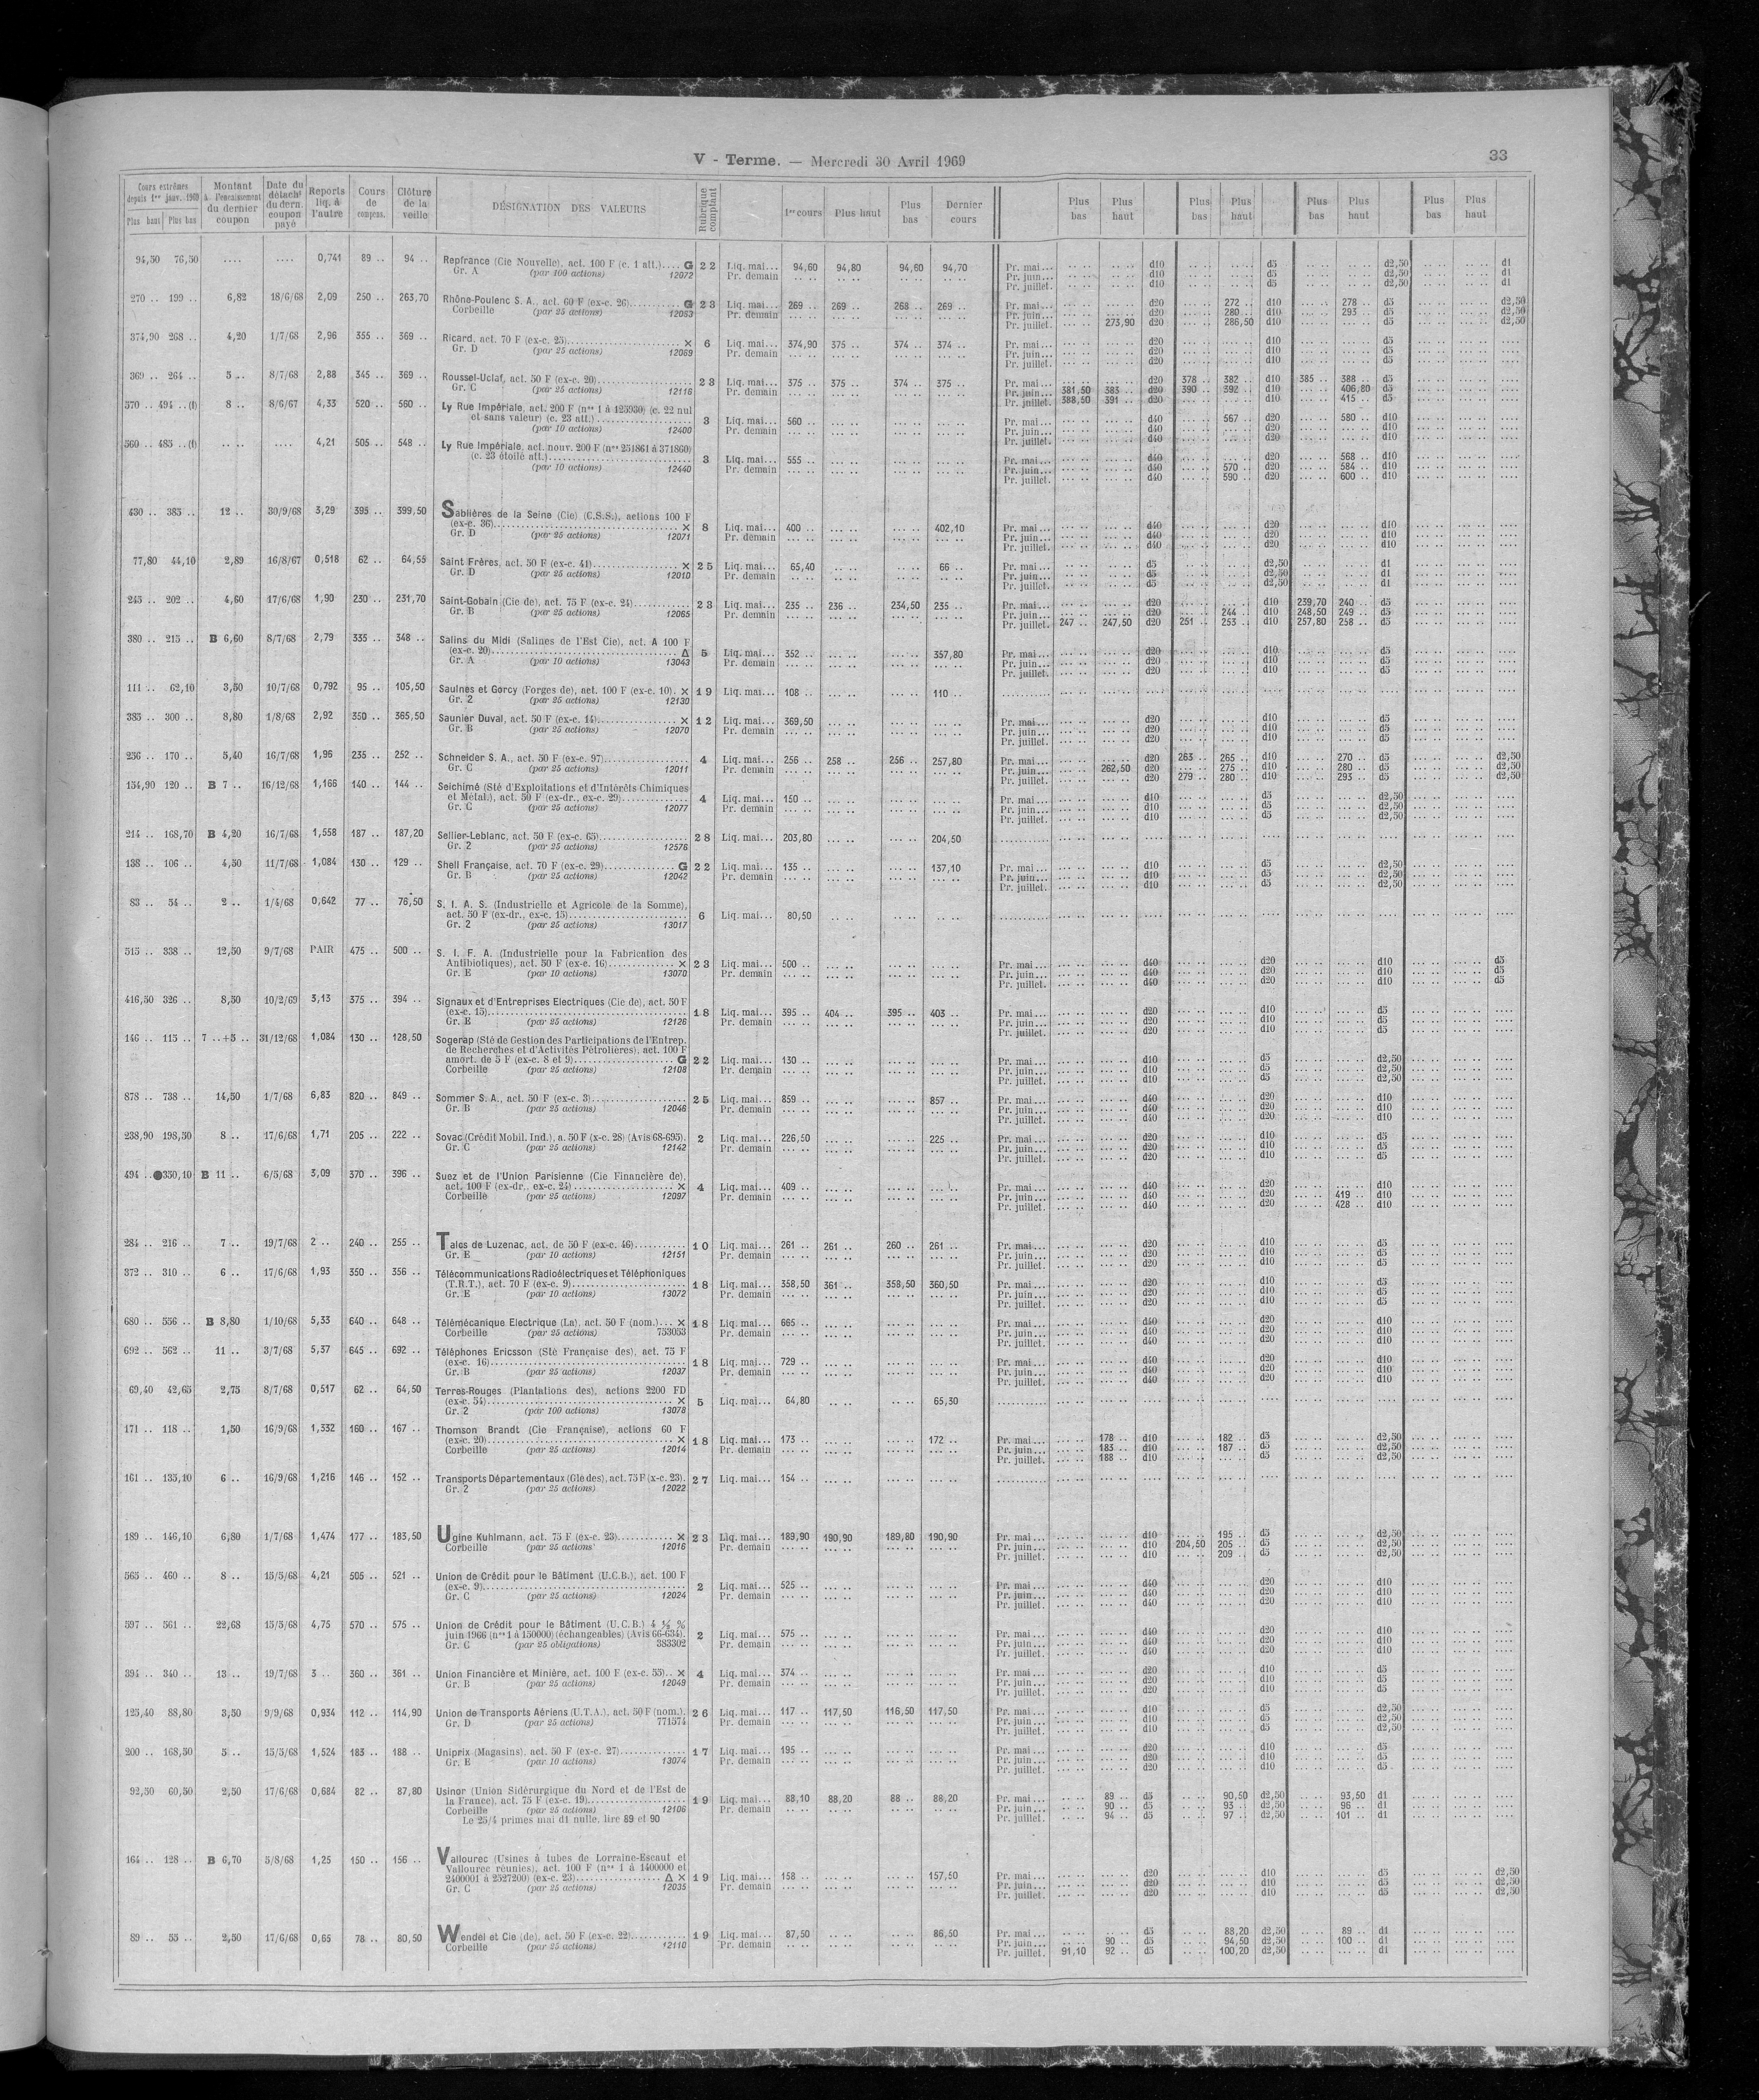 V - Terme. — Mercredi 30 Avril 1969
33
Cours extrêmes depuis 1er janv. 1969 Plus haut Plus bas
Montant à l'encaissement du dernier coupon
Date du détacht du dern. coupon payé
Reports liq. à l'autre
Cours de compens.
Clôture de la veille
DÉSIGNATION DES VALEURS
Rubrique comptant
1er cours Plus haut Plus bas Dernier cours
Plus bas Plus haut Plus bas Plus haut Plus bas Plus haut Plus bas Plus haut
94,50 76,50 .... .... 0,741 89 .. 94 .. Repfrance (Cie Nouvelle), act. 100 F (c. 1 att.).... G 22 Liq. mai... 94,60 94,80 94,60 94,70 Pr. mai... d10 d5 d2,50 d1
Gr. A (par 100 actions) 12072 Pr. demain Pr. juin... d10 d5 d2,50 d1
Pr. juillet. d10 d5 d2,50 d1
270 .. 199 .. 6,82 18/6/68 2,09 250 .. 263,70 Rhône-Poulenc S. A., act. 60 F (ex-c. 26).......... G 23 Liq. mai... 269 .. 269 .. 268 .. 269 .. Pr. mai... d20 272 .. d10 278 .. d5 d2,50
Corbeille (par 25 actions) 12053 Pr. demain Pr. juin... d20 280 .. d10 293 .. d5 d2,50
Pr. juillet. 273,90 d20 286,50 d10 d5 d2,50
374,90 268 .. 4,20 1/7/68 2,96 355 .. 369 .. Ricard, act. 70 F (ex-c. 25).......... × 6 Liq. mai... 374,90 375 .. 374 .. 374 .. Pr. mai... d20 d10 d5
Gr. D (par 25 actions) 12069 Pr. demain Pr. juin... d20 d10 d5
Pr. juillet. d20 d10 d5
369 .. 264 .. 5 .. 8/7/68 2,88 345 .. 369 .. Roussel-Uclaf, act. 50 F (ex-c. 20).......... 23 Liq. mai... 375 .. 375 .. 374 .. 375 .. Pr. mai... d20 378 .. 382 .. d10 385 .. 388 .. d5
Gr. C (par 25 actions) 12116 Pr. demain Pr. juin... 381,50 383 .. d20 390 .. 392 .. d10 406,80 d5
Pr. juillet. 388,50 391 .. d20 d10 415 .. d5
570 .. 494 .. (1) 8 .. 8/6/67 4,33 520 .. 560 .. Ly Rue Impériale, act. 200 F (nos 1 à 125930) (c. 22 nul
et sans valeur) (c. 23 att.).......... 3 Liq. mai... 560 .. Pr. mai... d40 567 .. d20 580 .. d10
(par 10 actions) 12400 Pr. demain Pr. juin... d40 d20 d10
Pr. juillet. d40 d20 d10
560 .. 485 .. (1) .... .... 4,21 505 .. 548 .. Ly Rue Impériale, act. nouv. 200 F (nos 251861 à 371860)
(c. 23 étoilé att.).......... 3 Liq. mai... 555 .. Pr. mai... d40 d20 568 .. d10
(par 10 actions) 12440 Pr. demain Pr. juin... d40 570 .. d20 584 .. d10
Pr. juillet. d40 590 .. d20 600 .. d10
430 .. 385 .. 12 .. 30/9/68 3,29 395 .. 399,50 Sablières de la Seine (Cie) (C.S.S.), actions 100 F
(ex-c. 36).......... × 8 Liq. mai... 400 .. 402,10 Pr. mai... d40 d20 d10
Gr. D (par 25 actions) 12071 Pr. demain Pr. juin... d40 d20 d10
Pr. juillet. d40 d20 d10
77,80 44,10 2,89 16/8/67 0,518 62 .. 64,55 Saint Frères, act. 50 F (ex-c. 41).......... × 25 Liq. mai... 65,40 66 .. Pr. mai... d5 d2,50 d1
Gr. D (par 25 actions) 12010 Pr. demain Pr. juin... d5 d2,50 d1
Pr. juillet. d5 d2,50 d1
245 .. 202 .. 4,60 17/6/68 1,90 230 .. 231,70 Saint-Gobain (Cie de), act. 75 F (ex-c. 24).......... 23 Liq. mai... 235 .. 236 .. 234,50 235 .. Pr. mai... d20 d10 239,70 240 .. d5
Gr. B (par 25 actions) 12065 Pr. demain Pr. juin... d20 244 .. d10 248,50 249 .. d5
Pr. juillet. 247 .. 247,50 d20 251 .. 253 .. d10 257,80 258 .. d5
380 .. 215 .. B 6,60 8/7/68 2,79 335 .. 348 .. Salins du Midi (Salines de l'Est Cie), act. A 100 F
(ex-c. 20).......... Δ 5 Liq. mai... 352 .. 357,80 Pr. mai... d20 d10 d5
Gr. A (par 10 actions) 13043 Pr. demain Pr. juin... d20 d10 d5
Pr. juillet. d20 d10 d5
111 .. 62,10 3,50 10/7/68 0,792 95 .. 105,50 Saulnes et Gorcy (Forges de), act. 100 F (ex-c. 10). × 19 Liq. mai... 108 .. 110 ..
Gr. 2 (par 25 actions) 12130
385 .. 300 .. 8,80 1/8/68 2,92 350 .. 365,50 Saunier Duval, act. 50 F (ex-c. 14).......... × 12 Liq. mai... 369,50 Pr. mai... d20 d10 d5
Gr. B (par 25 actions) 12070 Pr. demain Pr. juin... d20 d10 d5
Pr. juillet. d20 d10 d5
256 .. 170 .. 5,40 16/7/68 1,96 235 .. 252 .. Schneider S. A., act. 50 F (ex-c. 97).......... 4 Liq. mai... 256 .. 258 .. 256 .. 257,80 Pr. mai... d20 263 .. 265 .. d10 270 .. d5 d2,50
Gr. C (par 25 actions) 12011 Pr. demain Pr. juin... 262,50 d20 275 .. d10 280 .. d5 d2,50
Pr. juillet. d20 279 .. 280 .. d10 293 .. d5 d2,50
154,90 120 .. B 7 .. 16/12/68 1,166 140 .. 144 .. Seichimé (Sté d'Exploitations et d'Intérêts Chimiques
et Métal.), act. 50 F (ex-dr., ex-c. 29).......... 4 Liq. mai... 150 .. Pr. mai... d10 d5 d2,50
Gr. C (par 25 actions) 12077 Pr. demain Pr. juin... d10 d5 d2,50
Pr. juillet. d10 d5 d2,50
214 .. 168,70 B 4,20 16/7/68 1,558 187 .. 187,20 Sellier-Leblanc, act. 50 F (ex-c. 65).......... 28 Liq. mai... 203,80 204,50
Gr. 2 (par 25 actions) 12576
138 .. 106 .. 4,50 11/7/68 1,084 130 .. 129 .. Shell Française, act. 70 F (ex-c. 29).......... G 22 Liq. mai... 135 .. 137,10 Pr. mai... d10 d5 d2,50
Gr. B (par 25 actions) 12042 Pr. demain Pr. juin... d10 d5 d2,50
Pr. juillet. d10 d5 d2,50
83 .. 54 .. 2 .. 1/4/68 0,642 77 .. 76,50 S. I. A. S. (Industrielle et Agricole de la Somme),
act. 50 F (ex-dr., ex-c. 15).......... 6 Liq. mai... 80,50
Gr. 2 (par 25 actions) 13017
515 .. 338 .. 12,50 9/7/68 PAIR 475 .. 500 .. S. I. F. A. (Industrielle pour la Fabrication des
Antibiotiques), act. 50 F (ex-c. 16).......... × 23 Liq. mai... 500 .. Pr. mai... d40 d20 d10 d5
Gr. E (par 10 actions) 13070 Pr. demain Pr. juin... d40 d20 d10 d5
Pr. juillet. d40 d20 d10 d5
416,50 326 .. 8,50 10/2/69 3,13 375 .. 394 .. Signaux et d'Entreprises Electriques (Cie de), act. 50 F
(ex-c. 15).......... 18 Liq. mai... 395 .. 404 .. 395 .. 403 .. Pr. mai... d20 d10 d5
Gr. E (par 25 actions) 12126 Pr. demain Pr. juin... d20 d10 d5
Pr. juillet. d20 d10 d5
146 .. 115 .. 7 ..+5 .. 31/12/68 1,084 130 .. 128,50 Sogerap (Sté de Gestion des Participations de l'Entrep.
de Recherches et d'Activités Pétrolières), act. 100 F
amort. de 5 F (ex-c. 8 et 9).......... G 22 Liq. mai... 130 .. Pr. mai... d10 d5 d2,50
Corbeille (par 25 actions) 12108 Pr. demain Pr. juin... d10 d5 d2,50
Pr. juillet. d10 d5 d2,50
878 .. 738 .. 14,50 1/7/68 6,83 820 .. 849 .. Sommer S. A., act. 50 F (ex-c. 3).......... 25 Liq. mai... 859 .. 857 .. Pr. mai... d40 d20 d10
Gr. B (par 25 actions) 12046 Pr. demain Pr. juin... d40 d20 d10
Pr. juillet. d40 d20 d10
238,90 198,50 8 .. 17/6/68 1,71 205 .. 222 .. Sovac (Crédit Mobil. Ind.), a. 50 F (x-c. 28) (Avis 68-695). 2 Liq. mai... 226,50 225 .. Pr. mai... d20 d10 d5
Gr. C (par 25 actions) 12142 Pr. demain Pr. juin... d20 d10 d5
Pr. juillet. d20 d10 d5
494 .. ●350,10 B 11 .. 6/5/68 3,09 370 .. 396 .. Suez et de l'Union Parisienne (Cie Financière de),
act. 100 F (ex-dr., ex-c. 24).......... × 4 Liq. mai... 409 .. Pr. mai... d40 d20 d10
Corbeille (par 25 actions) 12097 Pr. demain Pr. juin... d40 d20 419 .. d10
Pr. juillet. d40 d20 428 .. d10
284 .. 216 .. 7 .. 19/7/68 2 .. 240 .. 255 .. Talcs de Luzenac, act. de 50 F (ex-c. 46).......... 10 Liq. mai... 261 .. 261 .. 260 .. 261 .. Pr. mai... d20 d10 d5
Gr. E (par 10 actions) 12151 Pr. demain Pr. juin... d20 d10 d5
Pr. juillet. d20 d10 d5
372 .. 310 .. 6 .. 17/6/68 1,93 350 .. 356 .. Télécommunications Radioélectriques et Téléphoniques
(T.R.T.), act. 70 F (ex-c. 9).......... 18 Liq. mai... 358,50 361 .. 358,50 360,50 Pr. mai... d20 d10 d5
Gr. E (par 10 actions) 13072 Pr. demain Pr. juin... d20 d10 d5
Pr. juillet. d20 d10 d5
680 .. 556 .. B 8,80 1/10/68 5,33 640 .. 648 .. Télémécanique Electrique (La), act. 50 F (nom.)... × 18 Liq. mai... 665 .. Pr. mai... d40 d20 d10
Corbeille (par 25 actions) 753053 Pr. demain Pr. juin... d40 d20 d10
Pr. juillet. d40 d20 d10
692 .. 562 .. 11 .. 3/7/68 5,37 645 .. 692 .. Téléphones Ericsson (Sté Française des), act. 75 F
(ex-c. 16).......... 18 Liq. mai... 729 .. Pr. mai... d40 d20 d10
Gr. B (par 25 actions) 12037 Pr. demain Pr. juin... d40 d20 d10
Pr. juillet. d40 d20 d10
69,40 42,65 2,75 8/7/68 0,517 62 .. 64,50 Terres-Rouges (Plantations des), actions 2200 FD
(ex-c. 54).......... × 5 Liq. mai... 64,80 65,30
Gr. 2 (par 100 actions) 13078
171 .. 118 .. 1,50 16/9/68 1,332 160 .. 167 .. Thomson Brandt (Cie Française), actions 60 F
(ex-c. 20).......... × 18 Liq. mai... 173 .. 172 .. Pr. mai... 178 .. d10 182 .. d5 d2,50
Corbeille (par 25 actions) 12014 Pr. demain Pr. juin... 183 .. d10 187 .. d5 d2,50
Pr. juillet. 188 .. d10 d5 d2,50
161 .. 135,10 6 .. 16/9/68 1,216 146 .. 152 .. Transports Départementaux (Gle des), act. 75 F (x-c. 23). 27 Liq. mai... 154 ..
Gr. 2 (par 25 actions) 12022
189 .. 146,10 6,80 1/7/68 1,474 177 .. 183,50 Ugine Kuhlmann, act. 75 F (ex-c. 23).......... × 23 Liq. mai... 189,90 190,90 189,80 190,90 Pr. mai... d10 195 .. d5 d2,50
Corbeille (par 25 actions) 12016 Pr. demain Pr. juin... d10 204,50 205 .. d5 d2,50
Pr. juillet. d10 209 .. d5 d2,50
565 .. 460 .. 8 .. 15/5/68 4,21 505 .. 521 .. Union de Crédit pour le Bâtiment (U.C.B.), act. 100 F
(ex-c. 9).......... 2 Liq. mai... 525 .. Pr. mai... d40 d20 d10
Gr. C (par 25 actions) 12024 Pr. demain Pr. juin... d40 d20 d10
Pr. juillet. d40 d20 d10
597 .. 561 .. 22,68 15/5/68 4,75 570 .. 575 .. Union de Crédit pour le Bâtiment (U.C.B.) 4 ½ %
juin 1966 (nos 1 à 150000) (échangeables) (Avis 66-634). 2 Liq. mai... 575 .. Pr. mai... d40 d20 d10
Gr. C (par 25 obligations) 383302 Pr. demain Pr. juin... d40 d20 d10
Pr. juillet. d40 d20 d10
394 .. 340 .. 13 .. 19/7/68 3 .. 360 .. 361 .. Union Financière et Minière, act. 100 F (ex-c. 55).. × 4 Liq. mai... 374 .. Pr. mai... d20 d10 d5
Gr. B (par 25 actions) 12049 Pr. demain Pr. juin... d20 d10 d5
Pr. juillet. d20 d10 d5
125,40 88,80 3,50 9/9/68 0,934 112 .. 114,90 Union de Transports Aériens (U.T.A.), act. 50 F (nom.). 26 Liq. mai... 117 .. 117,50 116,50 117,50 Pr. mai... d10 d5 d2,50
Gr. D (par 25 actions) 771574 Pr. demain Pr. juin... d10 d5 d2,50
Pr. juillet. d10 d5 d2,50
200 .. 168,50 5 .. 15/5/68 1,524 183 .. 188 .. Uniprix (Magasins), act. 50 F (ex-c. 27).......... 17 Liq. mai... 195 .. Pr. mai... d20 d10 d5
Gr. E (par 10 actions) 13074 Pr. demain Pr. juin... d20 d10 d5
Pr. juillet. d20 d10 d5
92,50 60,50 2,50 17/6/68 0,684 82 .. 87,80 Usinor (Union Sidérurgique du Nord et de l'Est de
la France), act. 75 F (ex-c. 19).......... 19 Liq. mai... 88,10 88,20 88 .. 88,20 Pr. mai... 89 .. d5 90,50 d2,50 93,50 d1
Corbeille (par 25 actions) 12106 Pr. demain Pr. juin... 90 .. d5 93 .. d2,50 96 .. d1
Le 25/4 primes mai d1 nulle, lire 89 et 90 Pr. juillet. 94 .. d5 97 .. d2,50 101 .. d1
164 .. 128 .. B 6,70 5/8/68 1,25 150 .. 156 .. Vallourec (Usines à tubes de Lorraine-Escaut et
Vallourec réunies), act. 100 F (nos 1 à 1400000 et
2400001 à 2527200) (ex-c. 23).......... Δ × 19 Liq. mai... 158 .. 157,50 Pr. mai... d20 d10 d5 d2,50
Gr. C (par 25 actions) 12035 Pr. demain Pr. juin... d20 d10 d5 d2,50
Pr. juillet. d20 d10 d5 d2,50
89 .. 55 .. 2,50 17/6/68 0,65 78 .. 80,50 Wendel et Cie (de), act. 50 F (ex-c. 22).......... 19 Liq. mai... 87,50 86,50 Pr. mai... d5 88,20 d2,50 89 .. d1
Corbeille (par 25 actions) 12110 Pr. demain Pr. juin... 90 .. d5 94,50 d2,50 100 .. d1
Pr. juillet. 91,10 92 .. d5 100,20 d2,50 d1